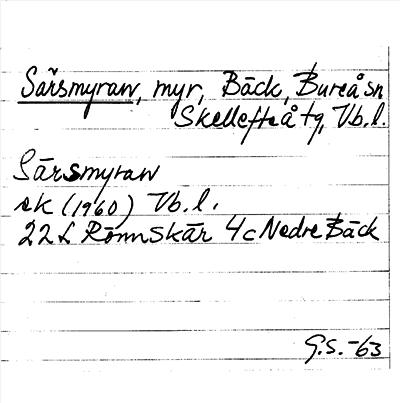 Särsmyran, myr, Bäck, Bureå sn
Skellefteå tg, Vb.l.
Särsmyran
ek (1960) Vb.l.
22L Rönnskär 4c Nedre Bäck
G.S. -63